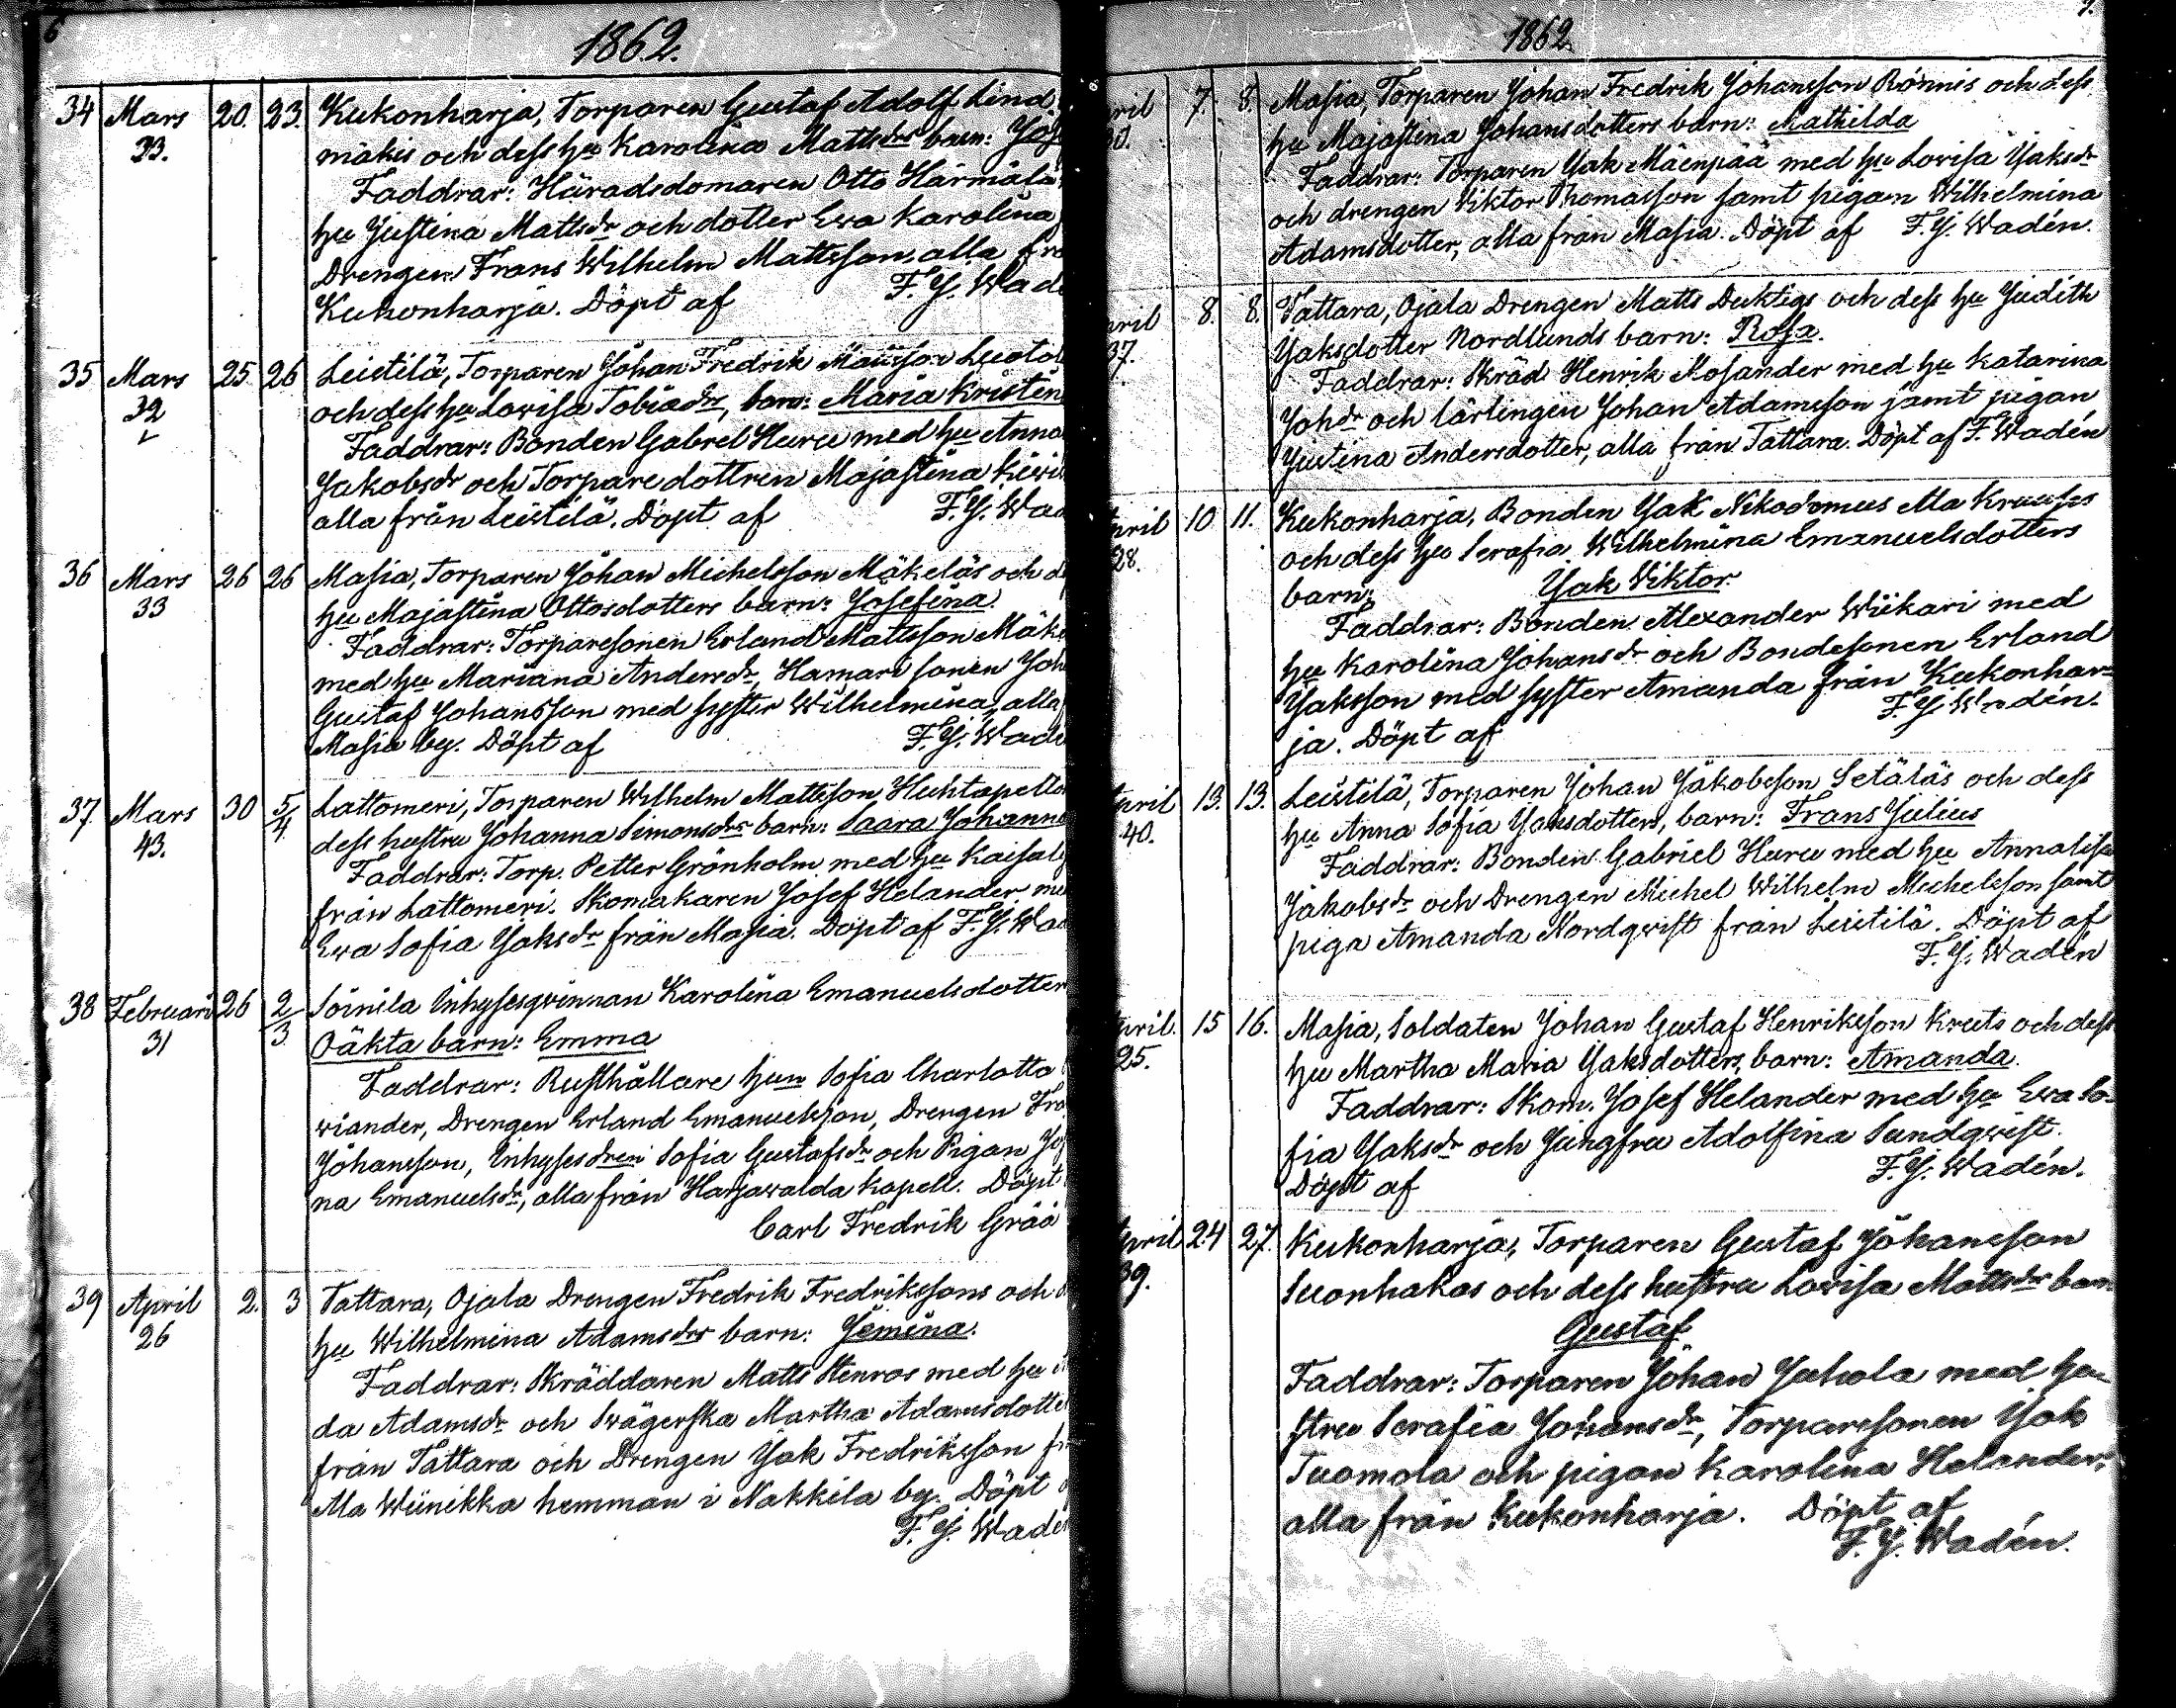 6
1862.
34 Mars 20. 23. Kukonharja, Torparen Gustaf Adolf Lind
33. mäkis och dess hu Karolina Mattsdrs barn:
Faddrar: Häradsdomaren Otto Härmälä
hu Justina Mattsdr och dotter Ewa Karolina
Drengen Frans Wilhelm Mattsson, alla frå
Kukonharja. Döpt af F. J. Wadé
35 Mars 25 26 Leistilä, Torparen Johan Fredrik Mattsson
32 och dess hu Lovisa Tobiædrs, barn: Maria Kristin
Faddrar: Bonden Gabrel Huru med hu Anna
Jakobsdr och Torparedottren Majastina
alla från Leistilä. Döpt af F. J. Wad
36 Mars 26 26 Masia, Torparen Johan Michelsson Mäkeläs och d
33 hu Majastina Ottosdotters barn: Josefina.
Faddrar: Torparesonen Erland Mattsson Mäke
med hu Mariana Andersdr, Hamari sonen Joh
Gustaf Johansson med syster Wilhelmina, alla
Masia by. Döpt af F. J. Wadé
37 Mars 30 5/4 Lattomeri, Torparen Wilhelm Mattsson Huhtapelto
43. dess hustru Johanna Simonsdrs barn: Saara Johanna
Faddrar: Torp. Petter Grönholm med hu Kaisa
från Lattomeri. Skomakaren Josef Helander me
Ewa Sofia Jaksdr från Masia. Döpt af F. J. Wad
38 Februari 26 2/3 Soinila Inhysesqvinnan Karolina Emanuelsdotter
31 Oäkta barn: Emma
Faddrar: Rusthållare hun Sofia Charlotta
wiander, Drengen Erland Emanuelsson, Drengen Fra
Johansson, Inhysesdren Sofia Gustafsdr och Pigan
na Emanuelsdr, alla från Harjawalda kapell. Döpt
Carl Fredrik Gråå
39 April 2. 3 Tattara, Ojala Drengen Fredrik Fredrikssons och d
26 hu Wilhelmina Adamsdrs barn: Jemina.
Faddrar: Skräddaren Matts Stenros med hu
da Adamsdr och Swägerska Martha Adamsdotter
från Tattara och Drengen Jak Fredriksson fr
Ala Wiinikka hemman i Nakkila by. Döpt
F. J. Wadé
1862
ril 7. 8. Masia, Torparen Johan Fredrik Johansson Rönnis och dess
30. hu Majastina Johansdotters barn: Mathilda
Faddrar: Torparen Jak Mäenpää med hu Lovisa Jaksdr
och drengen Viktor Thomasson samt pigan Wilhelmina
Adamsdotter, alla från Masia. Döpt af F. J. Wadén.
pril 8. 8. Tattara, Ojala Drengen Matts Duktigs och dess hu Judith
37. Jaksdotter Nordlunds barn: Rosa.
Faddrar: Skräd. Henrik Mosander med hu Katarina
Johdr och lärlingen Johan Adamsson jämt pigan
Justina Andersdotter, alla från Tattara. Döpt af F. Wadén
pril 10 11. Kukonharja, Bonden Jak Nikodemus Ala Krusas
28. och dess hu Serafia Wilhelmina Emanuelsdotters
barn: Jak Viktor
Faddrar: Bonden Alexander Wiikari med
hu Karolina Johansdr och Bondesonen Erland
Jaksson med syster Amanda från Kukonhar=
ja. Döpt af F. J. Wadén.
pril 13. 13. Leistilä, Torparen Johan Jakobsson Setäläs och dess
40. hu Anna Sofia Jaksdotters, barn: Frans Julius
Faddrar: Bonden Gabriel Huru med hu Annalisa
Jakobsdr och Drengen Michel Wilhelm Michelsson samt
piga Amanda Nordqwist från Leistilä. Döpt af
F. J. Wadén
pril. 15 16. Masia, Soldaten Johan Gustaf Henriksson Kruts och dess
25. hu Martha Maria Jaksdotters, barn: Amanda.
Faddrar: Skom. Josef Helander med hu Ewa So-
fia Jaksdr och Jungfru Adolfina Sundqwist.
Döpt af F. J. Wadén.
pril 24 27. Kukonharja, Torparen Gustaf Johansson
39. Suonhakas och dess hustru Lovisa Mattsdrs barn
Gustaf
Faddrar: Torparen Johan Juhola med hu
stru Serafia Johansdr, Torparesonen Jak
Tuomola och pigan Karolina Helander,
alla från Kukonharja. Döpt af
F. J. Wadén.